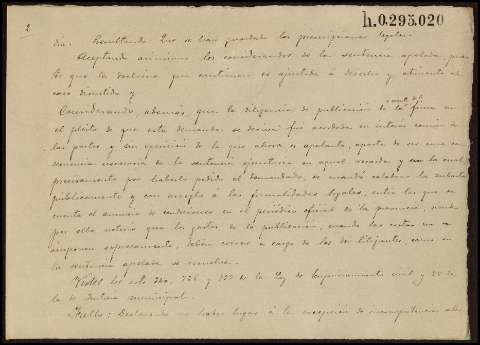 2
h.0.295.020
dia. Resultando: Que se han guardado las prescripciones legales.
Aceptando asimismo los considerandos de la sentencia apelada pues-
to que la doctrina que contienen es ajustada á derecho y atinente al
caso discutido y
Considerando, además, que la diligencia de publicación de la finca en
el pleito de que esta demanda se deriva fué acordada en interés común á
las partes y sin oposición de la que ahora es apelante, aparte de ser una con-
secuencia necesaria de la sentencia ejecutoria en aquel recaida y en la cual,
precisamente por haberlo pedido el demandado, se mandó celebrar la subasta
públicamente y con arreglo á las formalidades legales, entre las que se
cuenta el anuncio de condiciones en el periódico oficial de la provincia, siendo
por ello notorio que los gastos de la publicación, cuando las costas no se
imponen expresamente, deben correr á cargo de los dos litigantes, como en
la sentencia apelada se resuelve.
Vistos los arts 736 y de la Ley de Enjuiciamiento civil y 20 de
la de Justicia municipal.
Fallo: Declarando no haber lugar á la excepción de incompetencia ale-